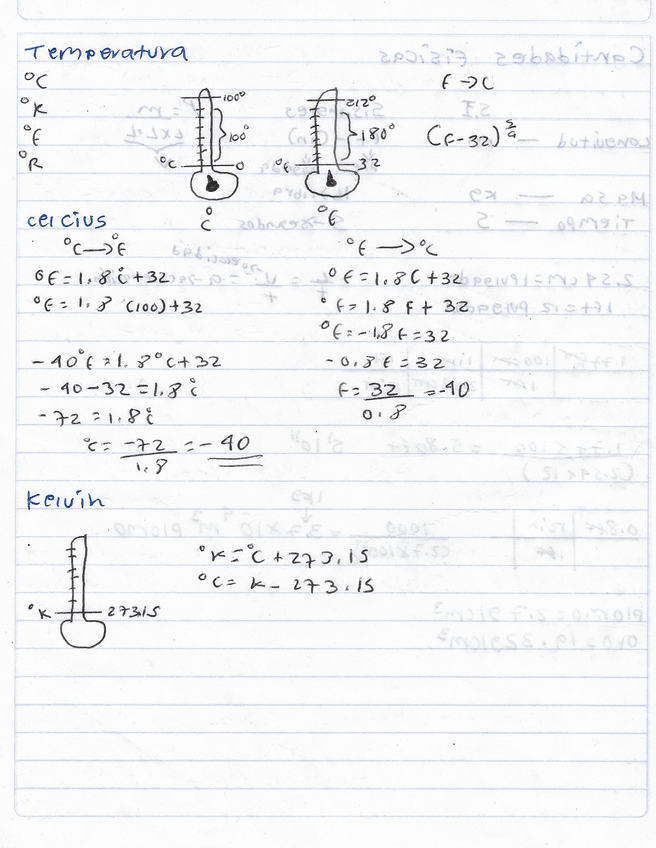 Temperatura
°C
°K
°F
°R
100°
100°
°C
0
°C
212°
180°
°F
32
°F
F → C
(F-32) 5/9
celcius
°C → °F
°F = 1.8 °C + 32
°F = 1.8 (100) + 32
-40°F = 1.8°C + 32
-40-32 = 1.8°C
-72 = 1.8°C
°C = -72/1.8 = -40
°F → °C
°F = 1.8C + 32
°F = 1.8 F + 32
°F = -1.8 F = 32
-0.8 F = 32
F = 32/0.8 = -40
Kelvin
°K
273.15
°K = °C + 273.15
°C = K - 273.15